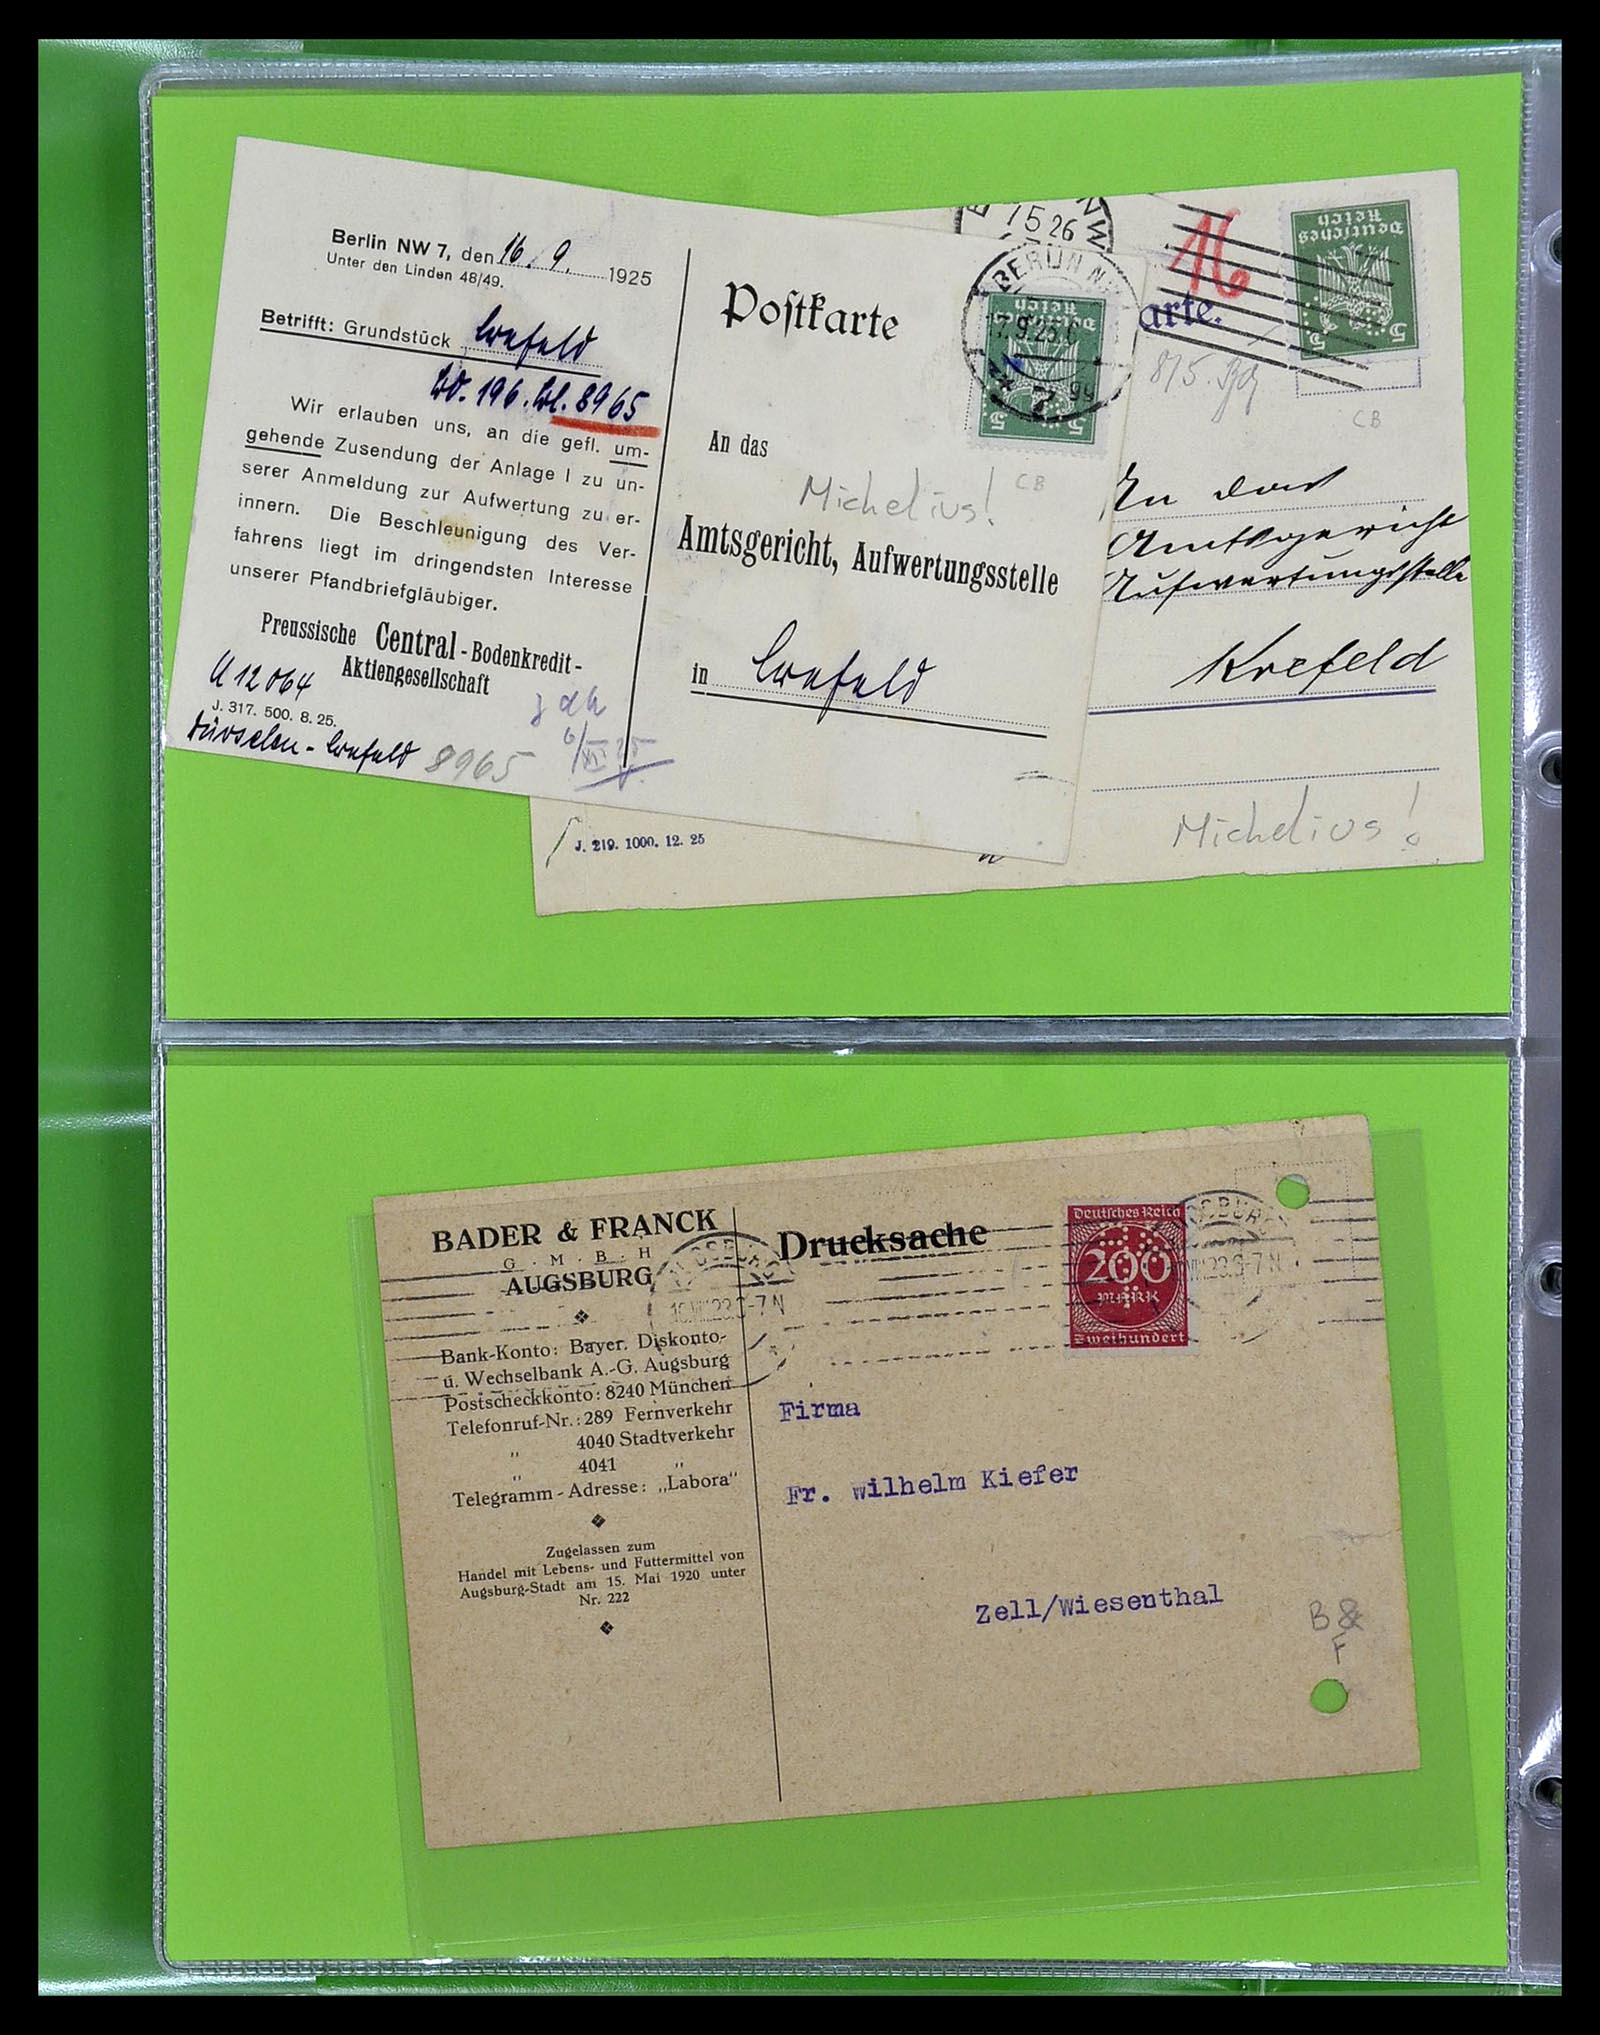 Berlin NW 7, den 16. 9. 1925
Unter den Linden 48/49.
Betrifft: Grundstück Crefeld
Bd. 196. Bl. 8965
Wir erlauben uns, an die gefl. um-
gehende Zusendung der Anlage I zu un-
serer Anmeldung zur Aufwertung zu er-
innern. Die Beschleunigung des Ver-
fahrens liegt im dringendsten Interesse
unserer Pfandbriefgläubiger.
Preussische Central-Bodenkredit-
Aktiengesellschaft
U 12064
J. 317. 500. 8. 25.
Crefeld 8965
Postkarte
BERLIN N
17.9.25
Deutsches
Reich
5 5
An das
Michelius!
CB
Amtsgericht, Aufwertungsstelle
in Crefeld
NW
7 5 26
16
arte.
Deutsches
Reich
5 5
8/5.
CB
An das
Amtsgericht
Aufwertungsstelle
Krefeld
Michelius!
J. 219. 1000. 12. 25
BADER & FRANCK
G. M. B. H
AUGSBURG
Bank-Konto: Bayer. Diskonto-
u. Wechselbank A.-G. Augsburg
Postscheckkonto: 8240 München
Telefonruf-Nr.: 289 Fernverkehr
„ 4040 Stadtverkehr
„ 4041 „
Telegramm-Adresse: „Labora"
Zugelassen zum
Handel mit Lebens- und Futtermittel von
Augsburg-Stadt am 15. Mai 1920 unter
Nr. 222
Drucksache
Deutsches Reich
200
MARK
Zweihundert
Firma
Fr. Wilhelm Kiefer
Zell/Wiesenthal
B &
F